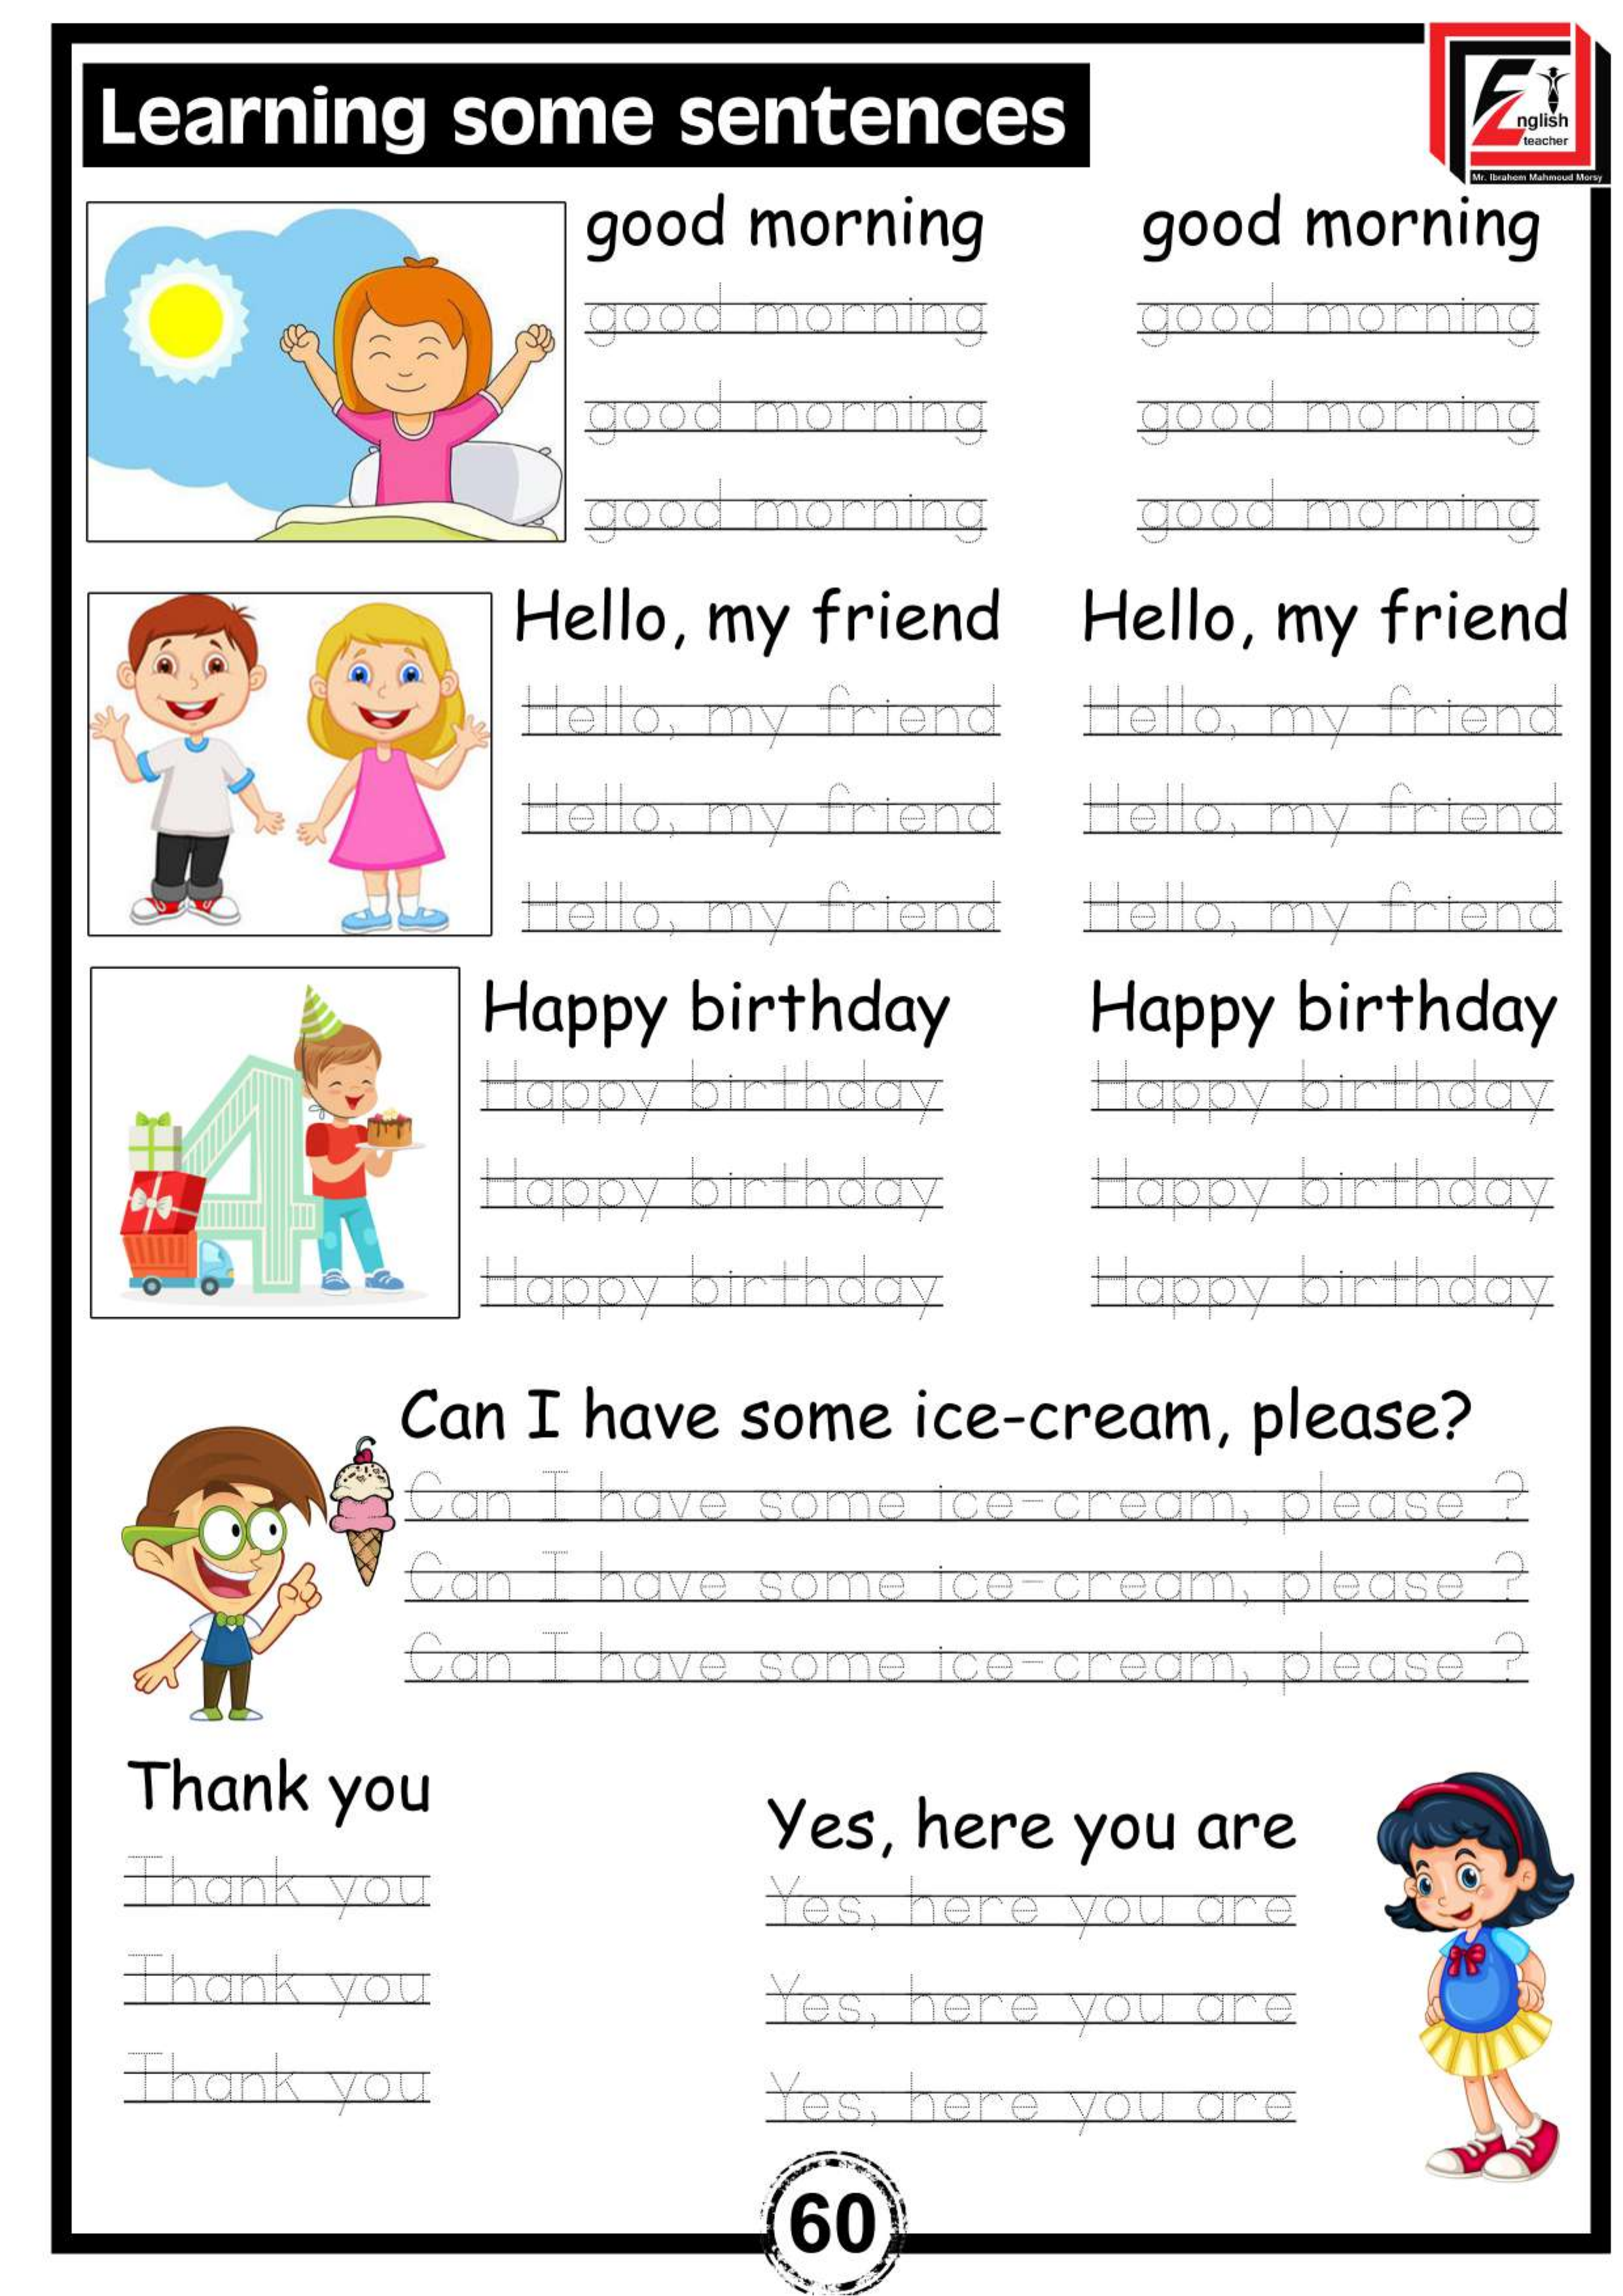 Learning some sentences
English
teacher
Mr. Ibrahem Mahmoud Morsy
good morning good morning
good morning good morning
good morning good morning
good morning good morning
Hello, my friend Hello, my friend
Hello, my friend Hello, my friend
Hello, my friend Hello, my friend
Hello, my friend Hello, my friend
4
Happy birthday Happy birthday
Happy birthday Happy birthday
Happy birthday Happy birthday
Happy birthday Happy birthday
Can I have some ice-cream, please?
Can I have some ice-cream, please ?
Can I have some ice-cream, please ?
Can I have some ice-cream, please ?
Thank you
Thank you
Thank you
Thank you
Yes, here you are
Yes, here you are
Yes, here you are
Yes, here you are
60